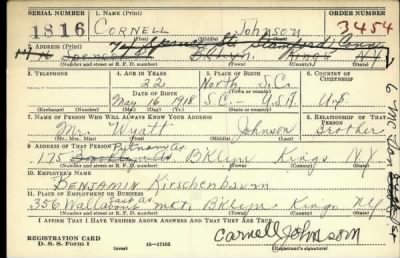 SERIAL NUMBER 1. NAME (Print) ORDER NUMBER
1816 CORNELL Johnson 3454
(First) (Middle) (Last)
2. ADDRESS (Print)
Stamford Conn
Bklyn. Kings N.Y.
(Number and street or R. F. D. number) (Town) (County) (State)
3. TELEPHONE 4. AGE IN YEARS 5. PLACE OF BIRTH 6. COUNTRY OF CITIZENSHIP
22 North
DATE OF BIRTH
May 16 1918 S.C. - U.S.A. U.S.
(Exchange) (Number) (Mo.) (Day) (Yr.) (State or country)
7. NAME OF PERSON WHO WILL ALWAYS KNOW YOUR ADDRESS 8. RELATIONSHIP OF THAT PERSON
Mr. Wyatt Johnson Brother
(Mr., Mrs., Miss) (First) (Middle) (Last)
9. ADDRESS OF THAT PERSON
Putnam Av
175 BKlyn Kings NY
(Number and street or R. F. D. number) (Town) (County) (State)
10. EMPLOYER'S NAME
BENJAMIN Kirschenbaum
11. PLACE OF EMPLOYMENT OR BUSINESS
East Av
356 Wallabout mkt. BKlyn. Kings NY.
(Number and street or R. F. D. number) (Town) (County) (State)
I AFFIRM THAT I HAVE VERIFIED ABOVE ANSWERS AND THAT THEY ARE TRUE.
REGISTRATION CARD
D. S. S. Form 1 (over) 16-17105
Carnell Johnson
(Registrant's signature)